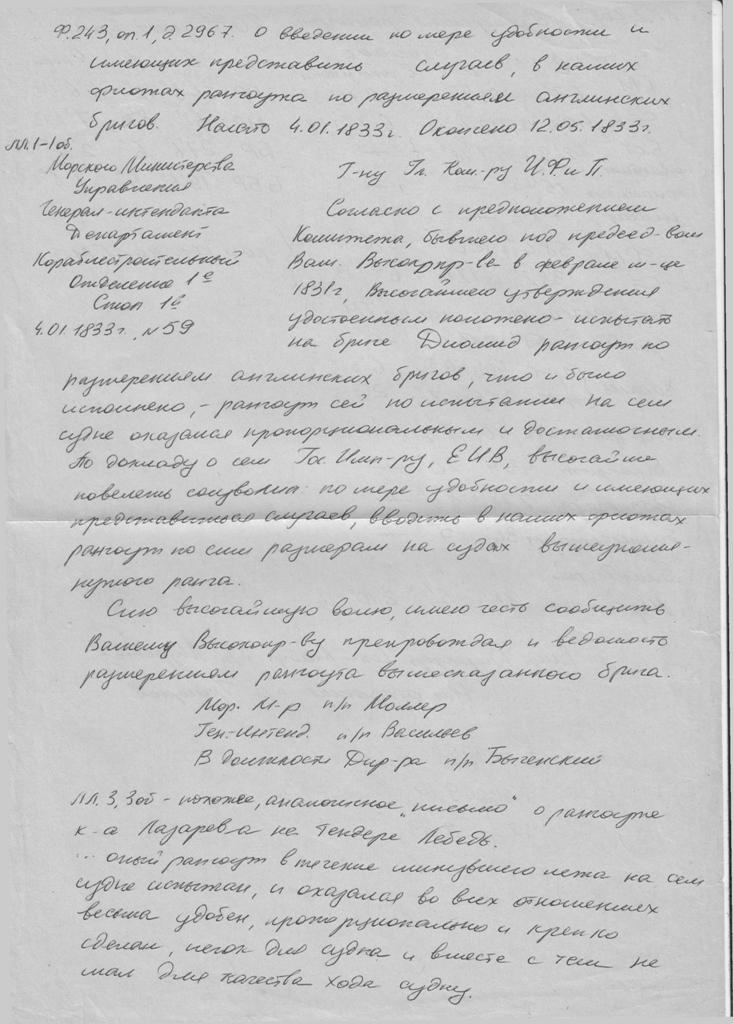 Ф.243, оп.1, д.2967. О введении по мере удобности и
имеющих представить случаев, в наших
флотах рангоута по размерениям английских
бригов. Начато 4.01.1833г. Окончено 12.05.1833г.
лл.1-1об.
Морского Министерства
Управления
Генерал-интенданта
Департамент
Кораблестроительный
Отделение 1е
Стол 1й
4.01.1833г., №59
Г-ну Гл. Ком-ру Ч.Ф и П.
Согласно с предположением
Комитета, бывшего под председ-вом
Ваш. Высокопр-ва в феврале м-це
1831г, Высочайшего утверждения
удостоенным положено - испытать
на бриге Диомид рангоут по
размерениям английских бригов, что и было
исполнено, - рангоут сей по испытании на сем
судне оказался пропорциональным и достаточным.
По докладу о сем Гос. Имп-ру, ЕИВ, высочайше
повелеть соизволил: по мере удобности и имеющих
представиться случаев, вводить в наших флотах
рангоут по сим размерам на судах вышеупомя-
нутого ранга.
Сию высочайшую волю, имею честь сообщить
Вашему Высокопр-ву препровождая и ведомость
размерениям рангоута вышесказанного брига.
Мор. М-р п/п Моллер
Ген.-Интенд. п/п Васильев
В должности Дир-ра п/п Быченский
лл. 3, 3об - похожее, аналогичное "письмо" о рангоуте
к-а Лазарева на тендере Лебедь.
... оный рангоут в течение минувшего лета на сем
судне испытан, и оказался во всех отношениях
весьма удобен, пропорционально и крепко
сделан, легок для судна и вместе с тем не
мал для качества хода судну.